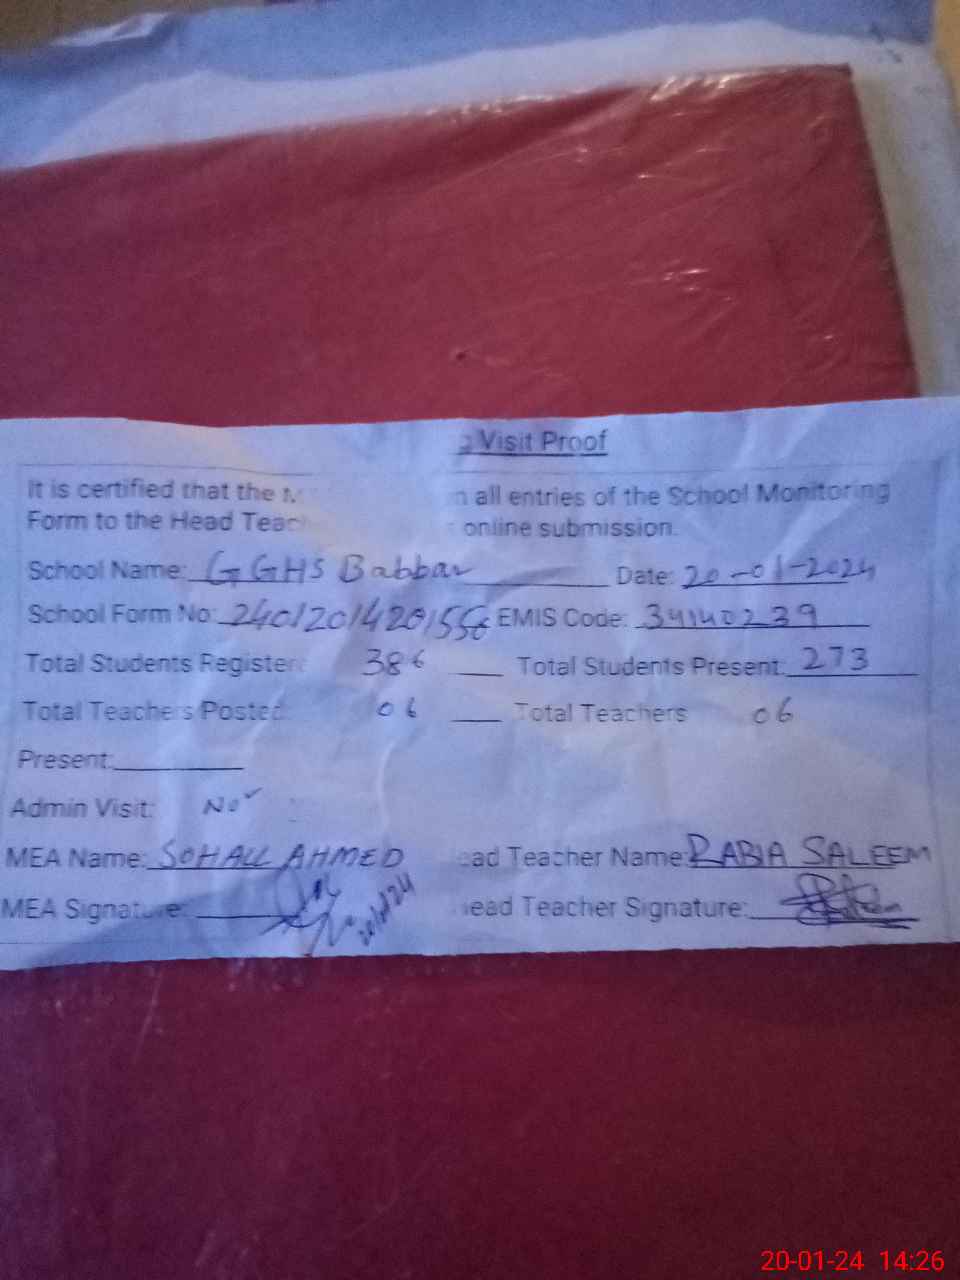 Visit Proof
It is certified that the all entries of the School Monitoring
Form to the Head online submission.
School Name: GGHS Babbar Date: 20-01-2024
School Form No: 24012014201556 EMIS Code: 34140239
Total Students Register 386 Total Students Present: 273
Total Teachers Posted 06 Total Teachers 06
Present:
Admin Visit: No
MEA Name: SOHAIL AHMED ead Teacher Name: RABIA SALEEM
MEA Signature: 20/1/24 ead Teacher Signature:
20-01-24 14:26